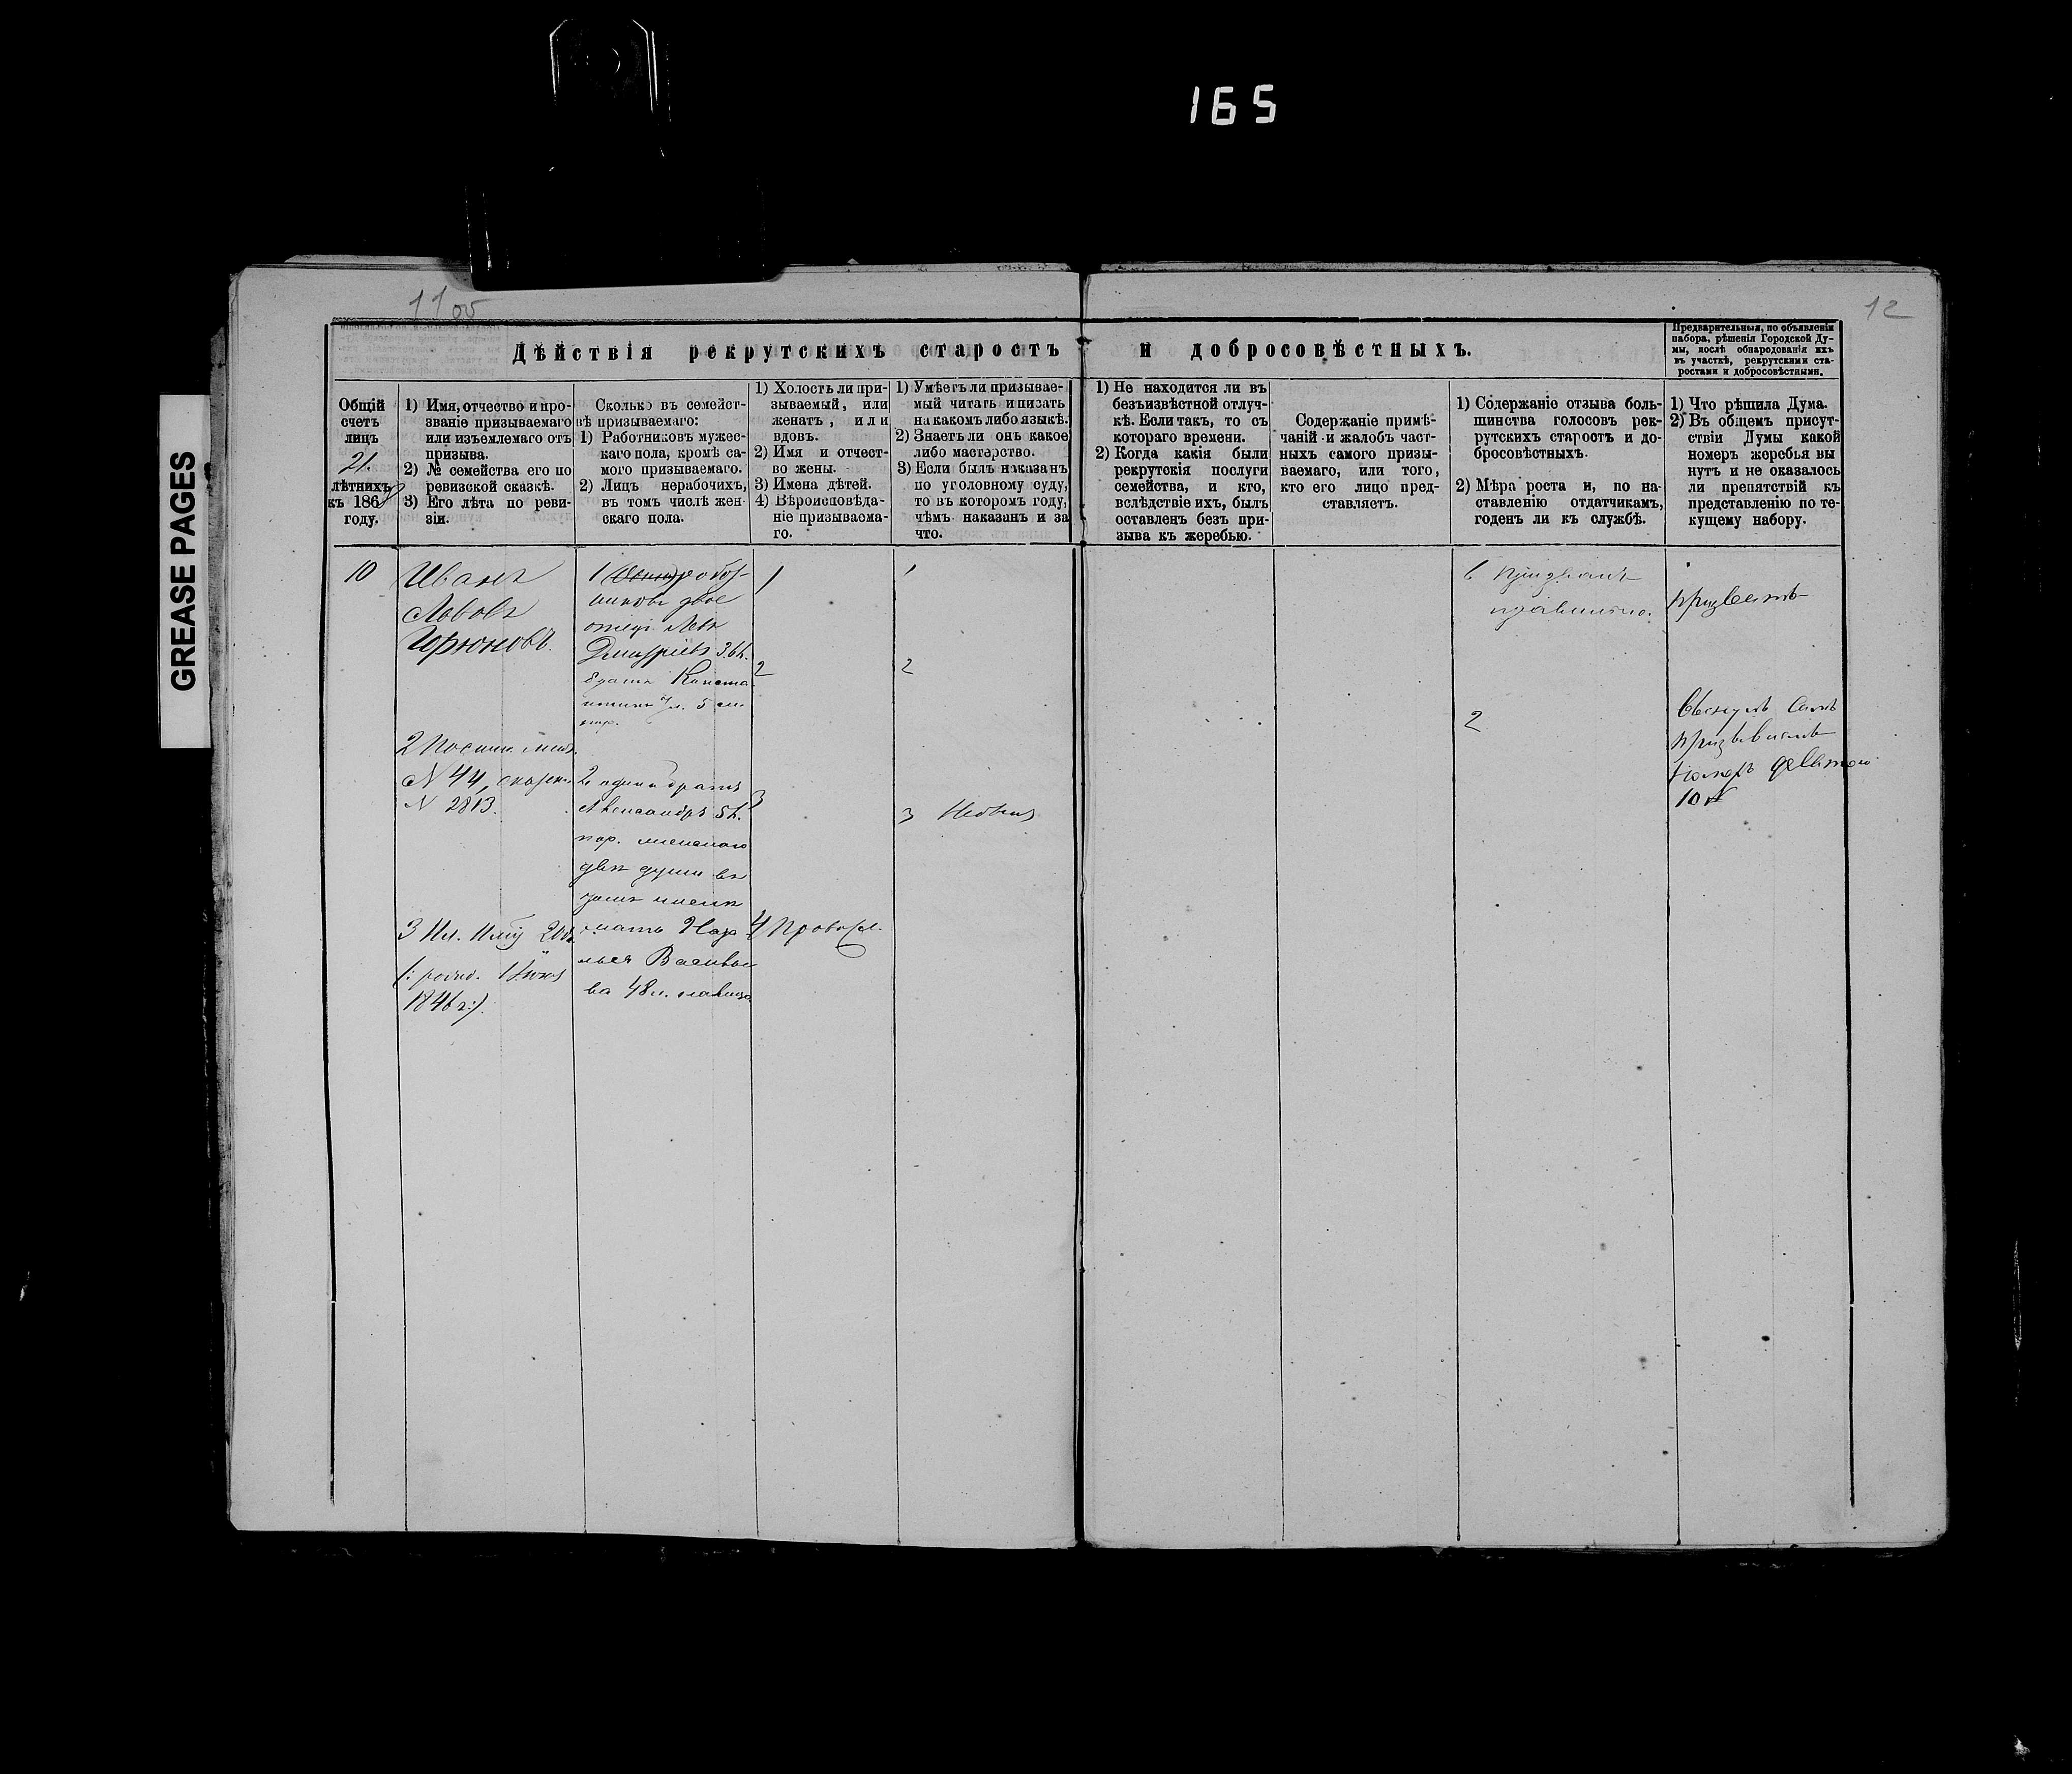 165
GREASE PAGES
11 об
12
Дѣйствія рекрутскихъ старостъ и добросовѣстныхъ.
Предварительныя, по объявленіи
набора, рѣшенія Городской Ду-
мы, послѣ обнародованія ихъ
въ участкѣ, рекрутскими ста-
ростами и добросовѣстными.
Общій
счетъ
лицъ
21
лѣтнихъ
къ 1868
году.
1) Имя, отчество и про-
званіе призываемаго
или изъемлемаго отъ
призыва.
2) № семейства его по
ревизской сказкѣ.
3) Его лѣта по реви-
зіи.
Сколько въ семейст-
вѣ призываемаго:
1) Работниковъ мужес-
каго пола, кромѣ са-
мого призываемаго.
2) Лицъ нерабочихъ,
въ томъ числѣ жен-
скаго пола.
1) Холостъ ли при-
зываемый, или
женатъ, или
вдовъ.
2) Имя и отчест-
во жены.
3) Имена дѣтей.
4) Вѣроисповѣда-
ніе призываема-
го.
1) Умѣетъ ли призывае-
мый читать и писать
на какомъ либо языкѣ.
2) Знаетъ ли онъ какое
либо мастерство.
3) Если былъ наказанъ
по уголовному суду,
то въ которомъ году,
чѣмъ наказанъ и за
что.
1) Не находится ли въ
безъизвѣстной отлуч-
кѣ. Если такъ, то съ
котораго времени.
2) Когда какія были
рекрутскія послуги
семейства, и кто,
вслѣдствіе ихъ, былъ
оставленъ безъ при-
зыва къ жеребью.
Содержаніе примѣ-
чаній и жалобъ част-
ныхъ самого призы-
ваемаго, или того,
кто его лицо пред-
ставляетъ.
1) Содержаніе отзыва боль-
шинства голосовъ рек-
рутскихъ старостъ и до-
бросовѣстныхъ.
2) Мѣра роста и, по на-
ставленію отдатчикамъ,
годенъ ли къ службѣ.
1) Что рѣшила Дума.
2) Въ общемъ присут-
ствіи Думы какой
номеръ жеребья вы
нутъ и не оказалось
ли препятствій къ
представленію по те-
кущему набору.
10
Иванъ
Львовъ
2
№ 44,
№ 2813.
3
1846 г:).
1
двое
отецъ Левъ
Дмитріевъ
братъ Конста
2 одинъ братъ
Александръ 5 л.
двѣ души въ
томъ числѣ
мать Ната
лья Василье
ва 48 л.
1
2
3
4 Правосл.
1
2
3 Небылъ
Призванъ
правильно.
2
призвать
Вынулъ самъ
призываемый
номеръ девятой
10 №